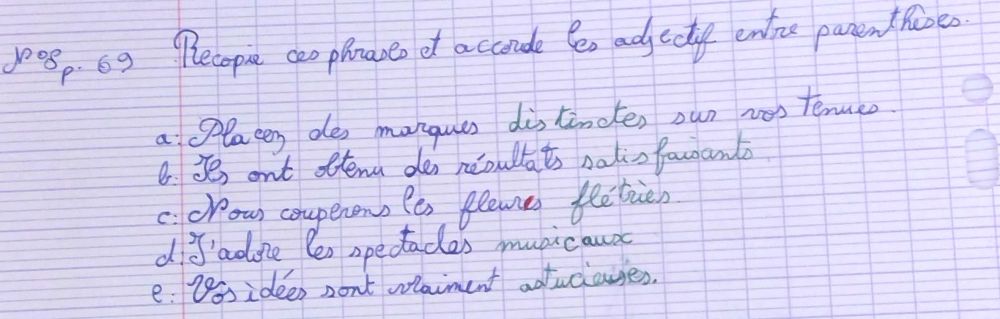 N°8 p. 69 Recopie ces phrases et accorde les adjectif entre parenthèses.
a: Placez des marques distinctes sur vos tenues.
b: Ils ont obtenu des résultats satisfaisants
c: Nous couperons les fleurs flétries.
d: J'adore les spectacles musicaux
e: Vos idées sont vraiment astucieuses.